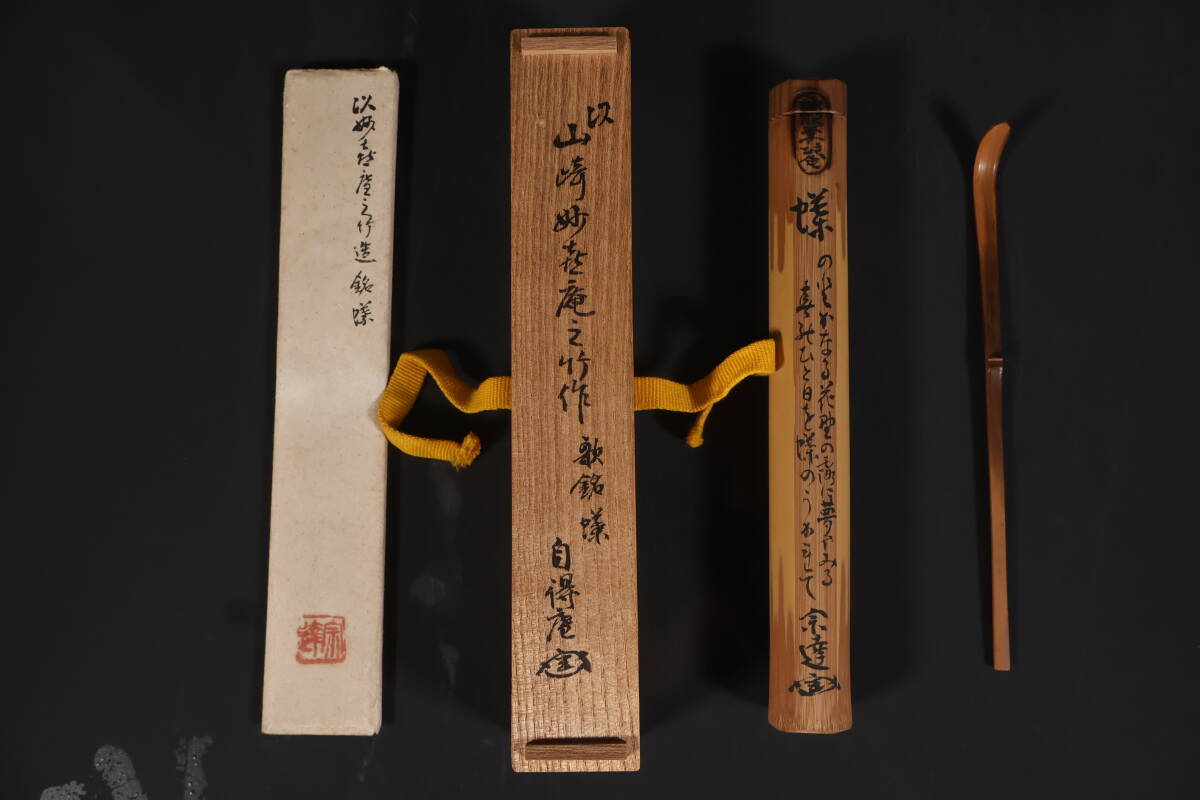 以妙喜庵之竹造 銘 蝶
以
山崎妙喜庵之竹作
歌銘 蝶
自得庵
蝶
の
なる花野の露に夢やみる
ひと日を蝶のうかれて
宗達